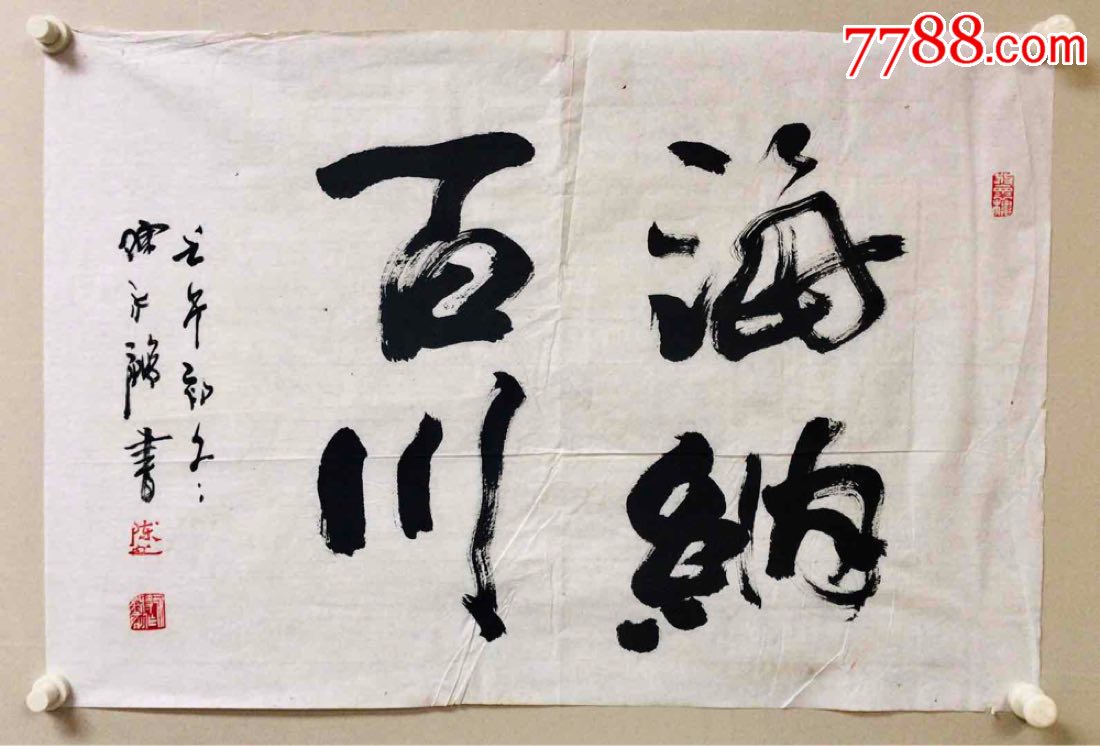 7788.com
海納
百川
壬午初冬
陳永鏘書
陈